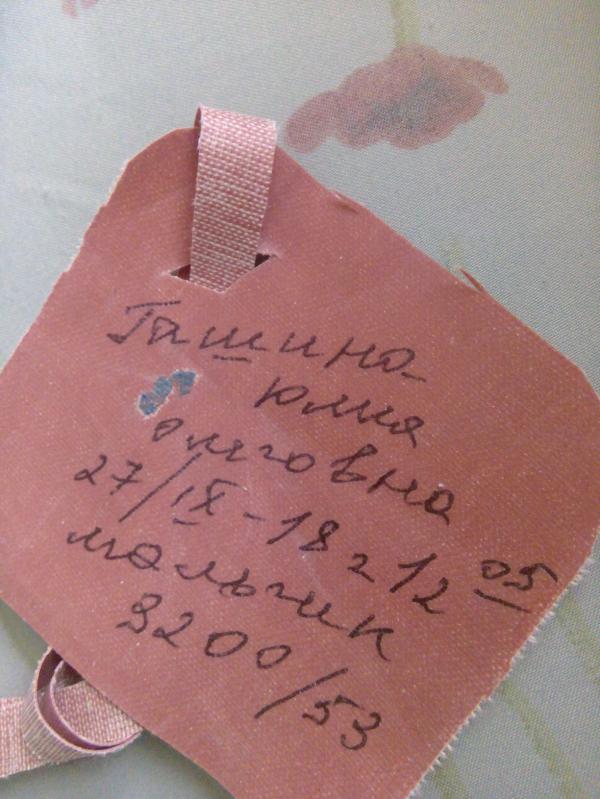 Гашина
Юлия
Олеговна
27/IX-18г 12 05
мальчик
3200/53